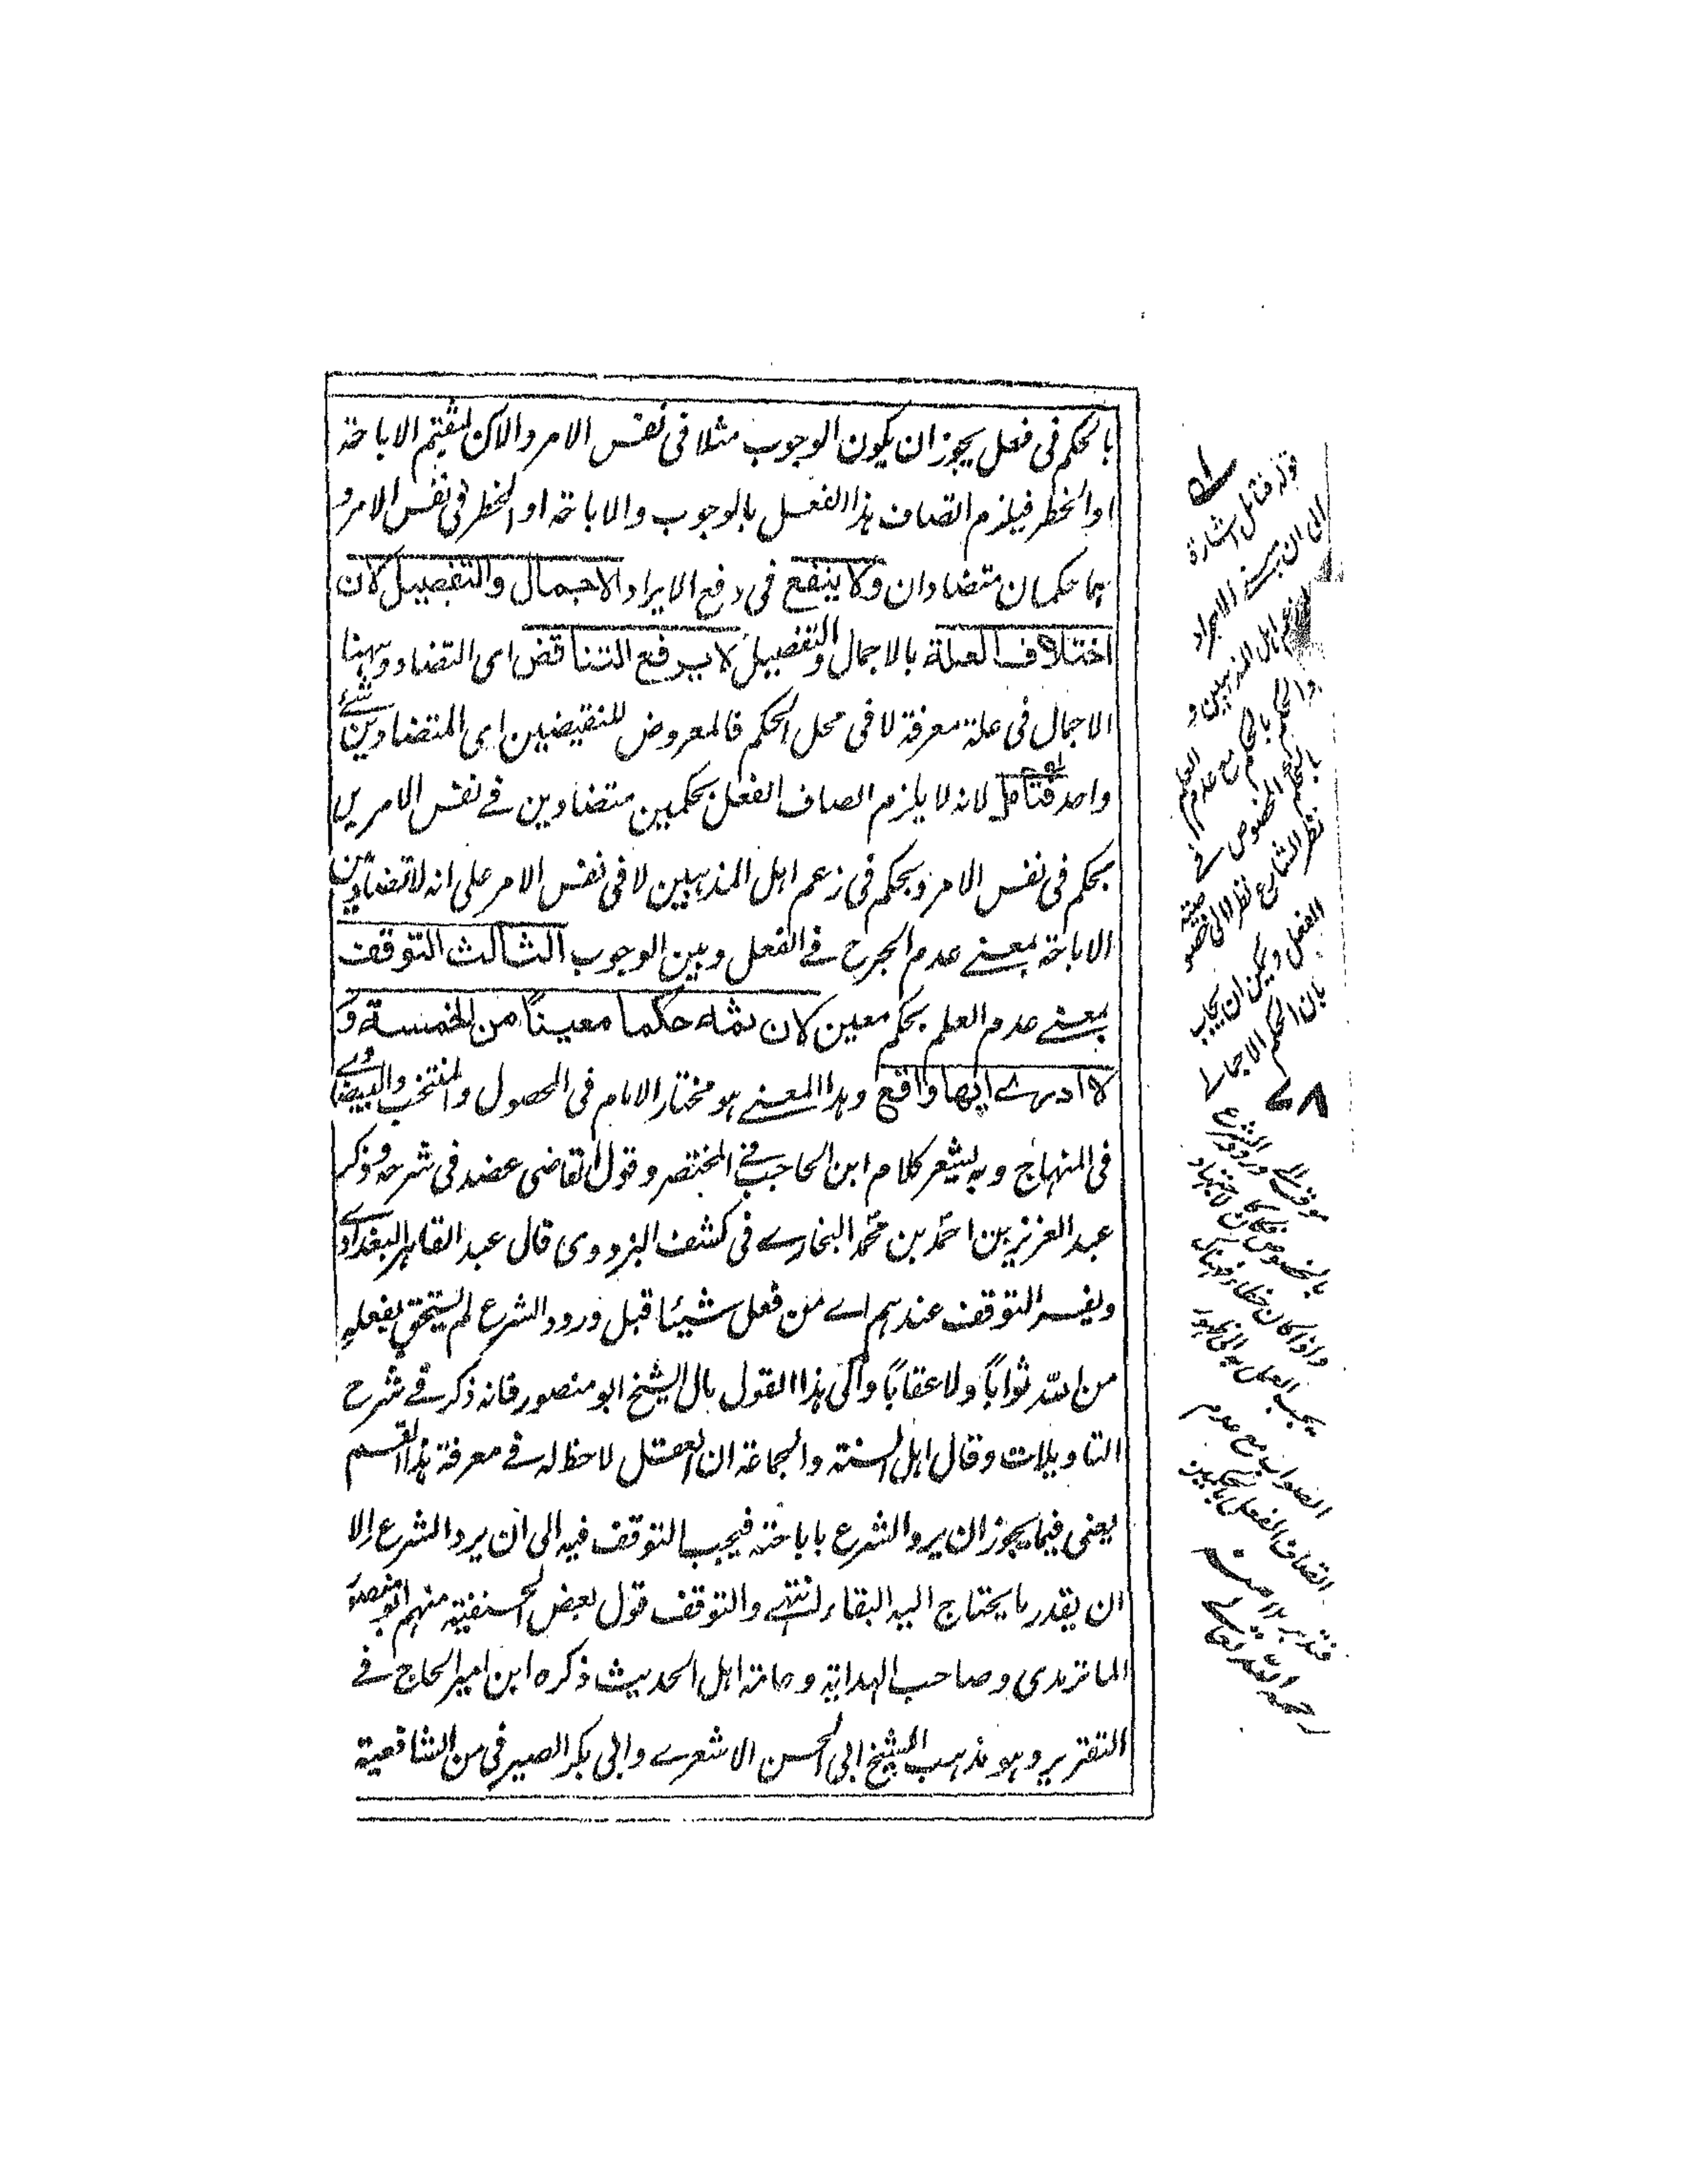 بالحكم فى فعل يجوز ان يكون الوجوب مثلا فى نفس الامر والآكن الاباحة
او الخطر فيلزم اتصاف هذا الفعل بالوجوب والاباحة او الخطر فى نفس الامر و
هما حكمان متضادان ولا ينفع فى دفع الايراد الاجمال والتفصيل لان
اختلاف العلة بالاجمال والتفصيل لا يرفع التناقض اى التضاد وههنا
الاجمال فى علة معرفة لا فى محل الحكم فالمعروض للنقيضين اى المتضادين شئ
واحد فتامل لانه لا يلزم اتصاف الفعل بحكمين متضادين فے نفس الامر بل
بحكم فى نفس الامر وبحكم فى زعم اهل المذهبين لا فى نفس الامر على انه لا تضاد بين
الاباحة بمعنے عدم الحرج فے الفعل وبين الوجوب الثالث التوقف
بمعنے عدم العلم بحكم معين لان ثمه حكما معينًا من الخمسة و
لا ادرے ايها واقع وهذا المعنے هو مختار الامام فى المحصول والمنتخب والبيضاوے
فى المنهاج وبه يشعر كلام ابن الحاجب فے المختصر وقول القاضى عضد فى شرحه وذكر
عبد العزيز بن احمد بن محمد البخارے فى كشف البزدوى قال عبد القاهر البغدادے
ويفسر التوقف عندهم اے من فعل شيئا قبل ورود الشرع لم يستحق بفعله
من الله ثوابًا ولا عقابًا والى هذا القول مال الشيخ ابو منصور فانه ذكر فے شرح
التاويلات وقال اهل السنة والجماعة ان العقل لا حظ له فے معرفة هذا القسم
يعنى فيما يجوز ان يرد الشرع باباحته فيجب التوقف فيه الى ان يرد الشرع الا
ان يقدر ما يحتاج اليه البقاء انتهے والتوقف قول بعض الحنفية منهم ابو منصور
الماتريدى وصاحب الهداية وعامة اهل الحديث ذكره ابن امير الحاج فے
التقرير وهو مذهب الشيخ ابى الحسن الاشعرے وابى بكر الصيرفى من الشافعية
قوله فتامل اشارة
الى ان مبنے الايراد
زعم اهل المذهبين و
بالحكم مع عدم العلم
بالحكم المخصوص فے
نظر الشارع نظرا الى خصوصية
الفعل ويمكن ان يجاب
بان الحكم الاجمالے
ورود الشرع
بالخصوص فكان الاجتهاد
واذا كان خطاء
يجب العمل به
الصواب مع عدم
اتصاف الفعل بالحكمين
فتدبر
رحمه الله تعالے